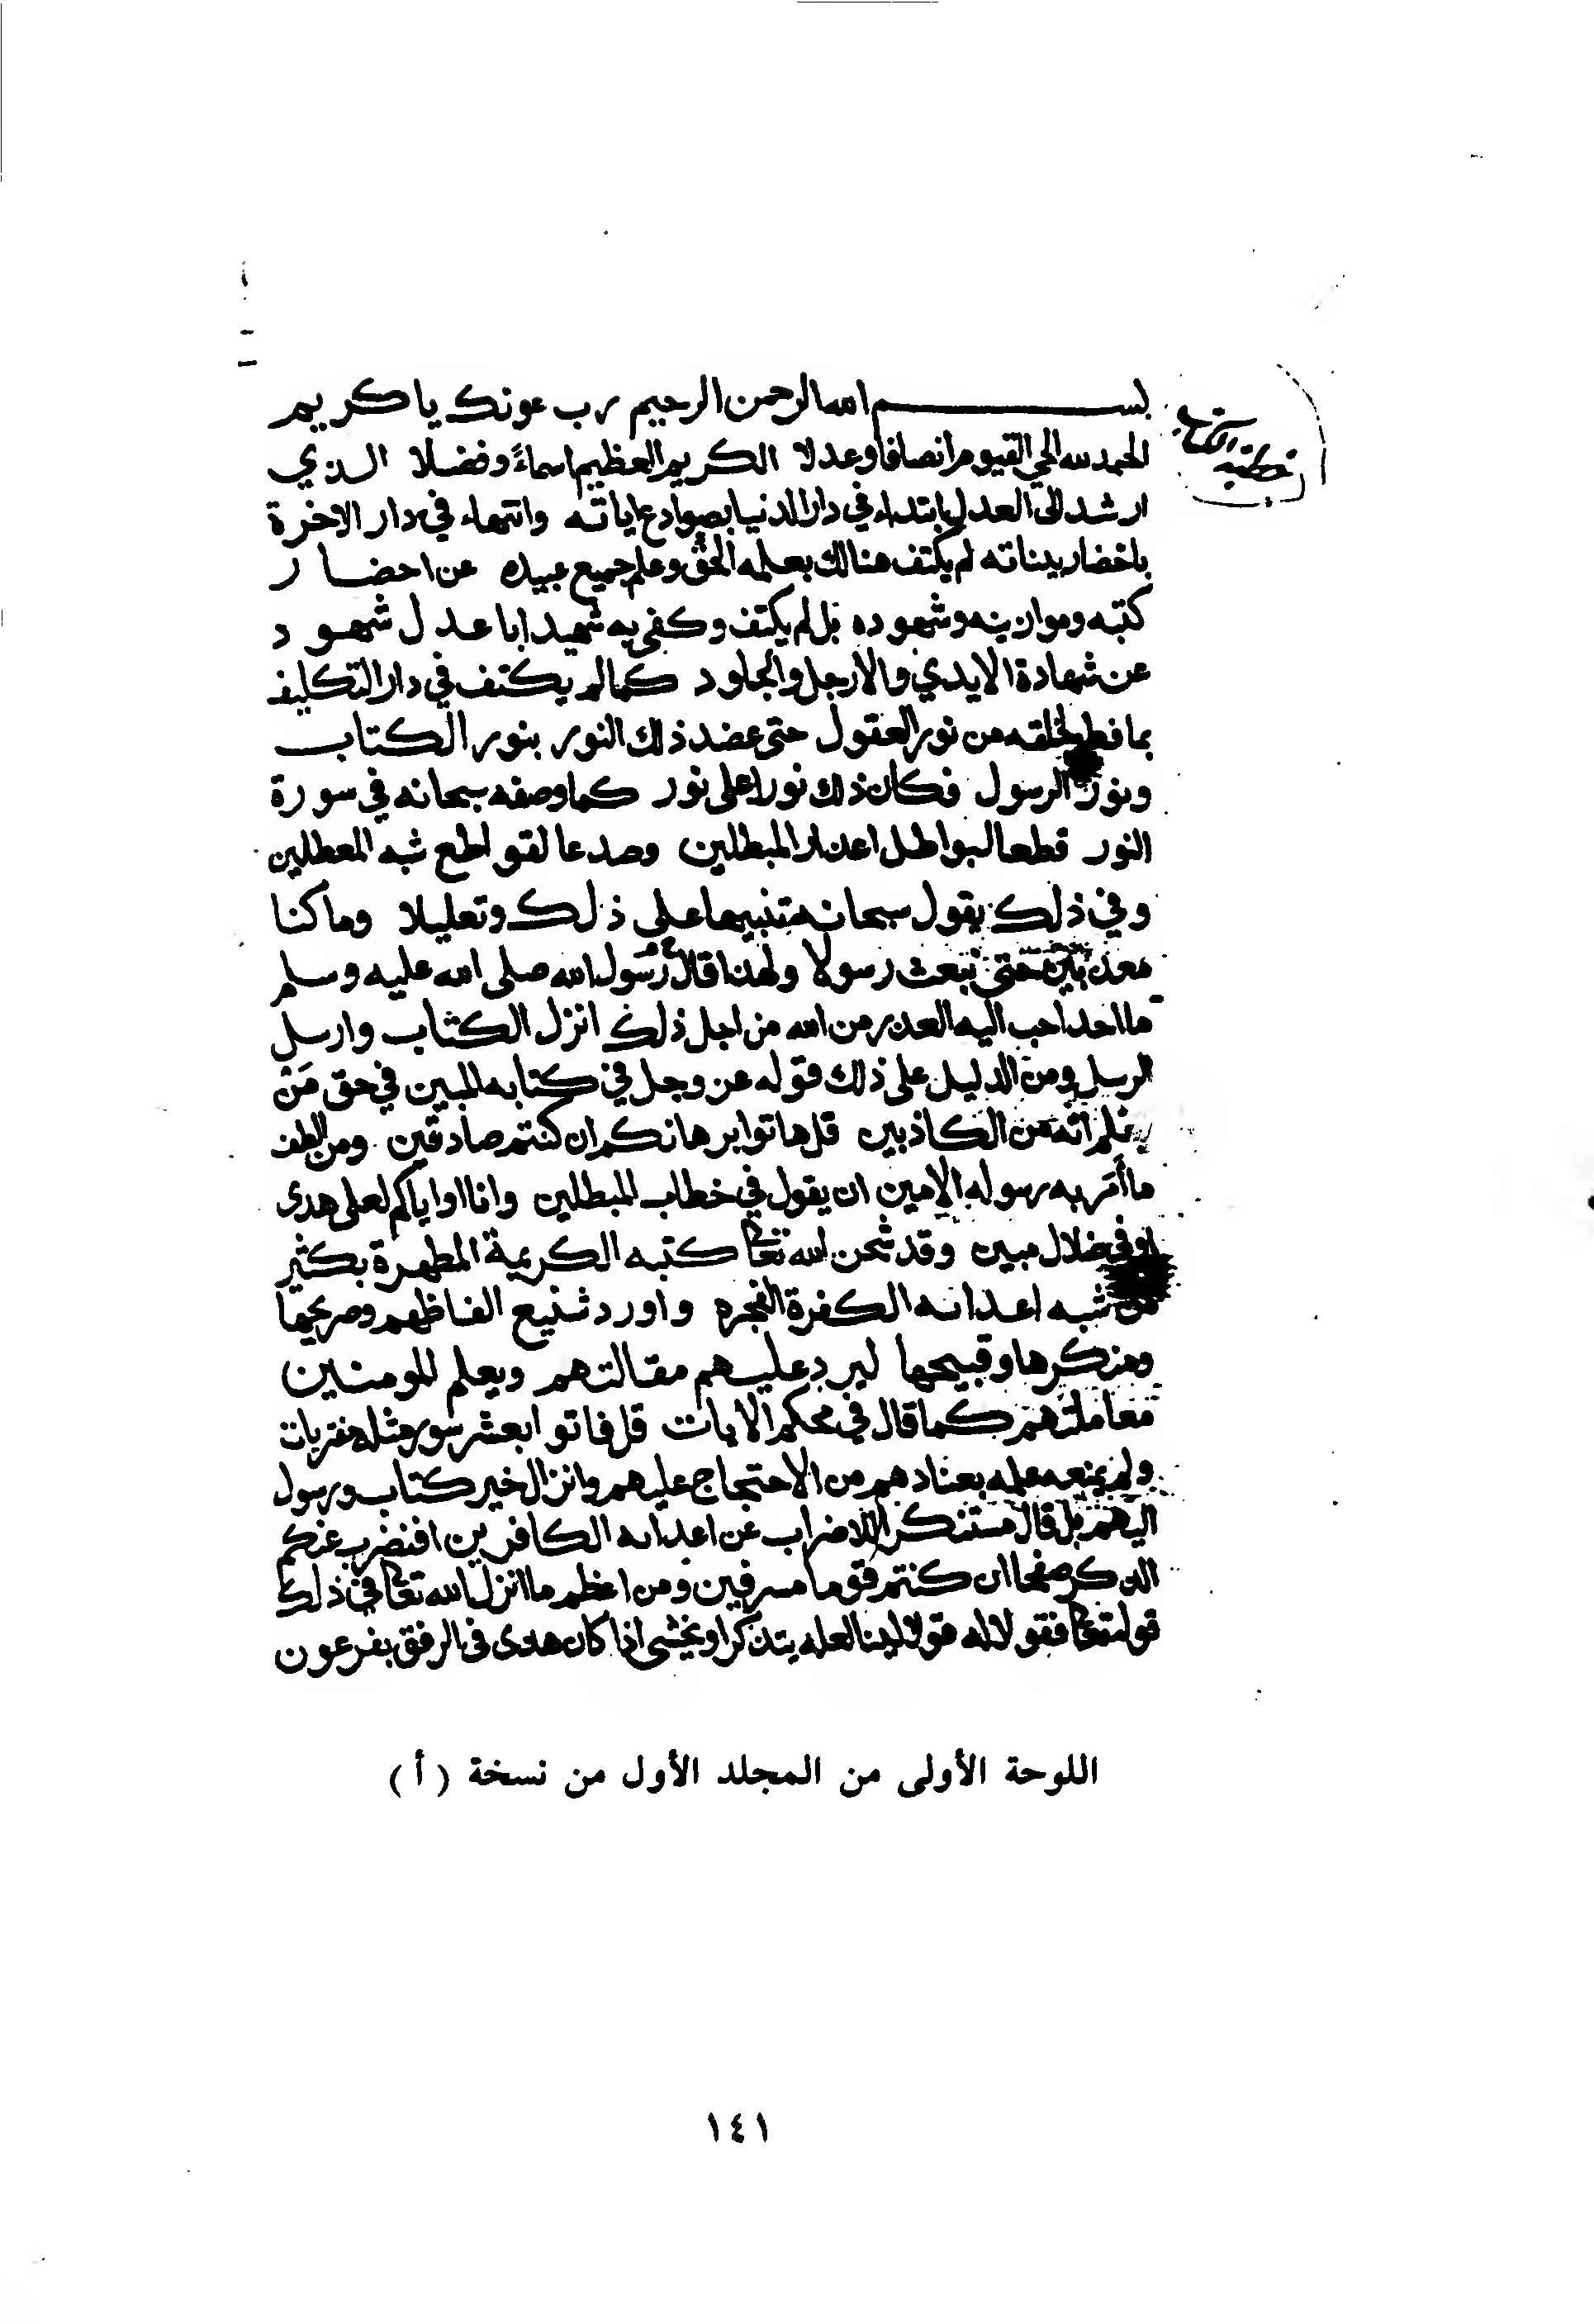 بسم الله الرحمن الرحيم رب عونك يا كريم
خطبة الكتاب
الحمد لله الحي القيوم انصافا وعدلا الكريم العظيم اسماءً وفضلا الذي
ارشد الى العدل ابتداء في دار الدنيا بصوادع اياته وانتهاء في دار الاخرة
باحضار بيناته لم يكتف هنالك بعلمه الحق وعلم جميع عبيده عن احضار
كتبه وموازينه وشهوده بل لم يكتف وكفى به شهيدا باعدل شهود
عن شهادة الايدي والارجل والجلود كما لم يكتف في دار التكليف
بما فطر لخلقه من نور العقول حتى عضد ذلك النور بنور الكتاب
ونور الرسول فكان ذلك نورا على نور كما وصفه سبحانه في سورة
النور قطعا لبواطل اعذار المبطلين وصدعا لقواطع شبه المعطلين
وفي ذلك يقول سبحانه تنبيها على ذلك وتعليلا وما كنا
معذبين حتى نبعث رسولا ولهذا قال رسول الله صلى الله عليه وسلم
ما احد احب اليه العذر من الله من اجل ذلك انزل الكتاب وارسل
الرسل ومن الدليل على ذلك قوله عز وجل في كتابه المبين في حق مَنْ
يعلم انه من الكاذبين قل هاتوا برهانكم ان كنتم صادقين ومن الطف
ما أمَر به رسوله الامين ان يقول في خطاب المبطلين وانا او اياكم لعلى هدى
او في ضلال مبين وقد شحن الله تعالى كتبه الكريمة المطهرة بكثير
من شبه اعدائه الكفرة الفجره واورد شنيع الفاظهم وصريحها
ومنكرها وقبيحها ليرد عليهم مقالتهم ويعلم المومنين
معاملتهم كما قال في محكم الايات قل فاتوا بعشر سور مثله مفتريات
ولم يمنعه علمه بعنادهم من الاحتجاج عليهم وانزال خير كتاب ورسول
اليهم بل قال مستنكرا للاضراب عن اعدائه الكافرين افنضرب عنكم
الذكر صفحا ان كنتم قوما مسرفين ومن اعظم ما انزل الله تعالى في ذلك
قوله تعالى فقولا له قولا لينا لعله يتذكر او يخشى اذا كان هدى في الرفق بفرعون
اللوحة الأولى من المجلد الأول من نسخة (أ)
١٤١